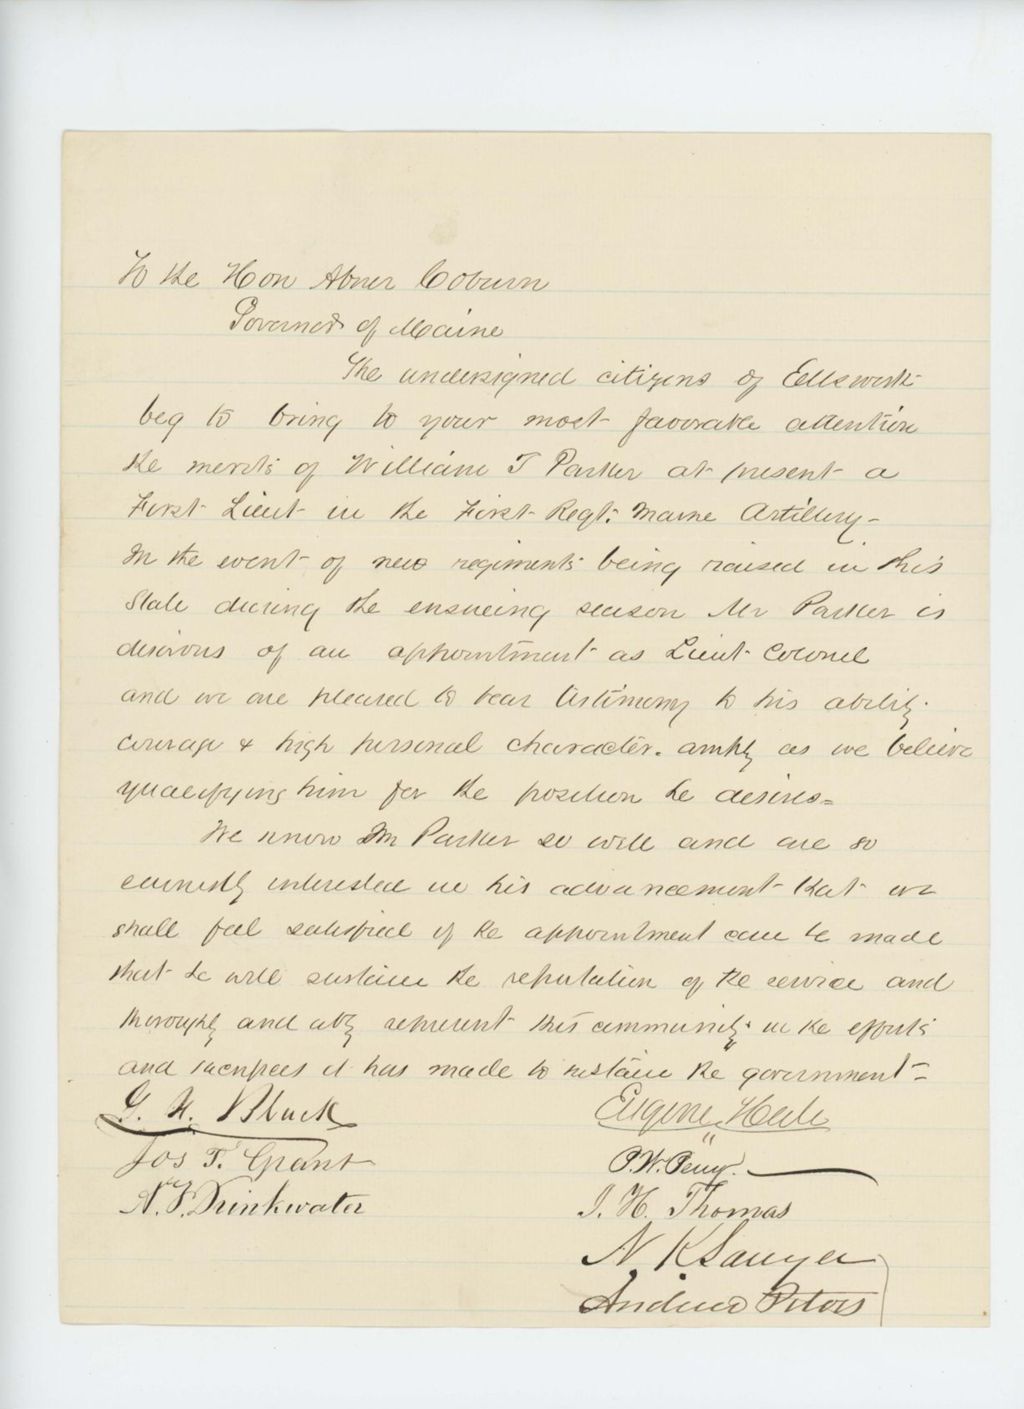 To the Hon Abner Coburn
Governor of Maine
The undersigned citizens of Ellsworth
beg to bring to your most favorable attention
the merits of William T Parker at present a
First Lieut in the First Regt. Maine Artillery -
In the event of new regiments being raised in this
State during the ensueing season Mr Parker is
desirous of an appointment as Lieut Colonel
and we are pleased to bear testimony to his ability.
courage & high personal character. amply as we believe
qualifying him for the position he desires =
We know Mr Parker so well and are so
earnestly interested in his advancement that we
shall feel satisfied if the appointment can be made
that he will sustain the reputation of the service and
thoroughly and ably represent this community in the efforts
and sacrifices it has made to sustain the government =
G. N. Black
Jos T. Grant
A. F. Drinkwater
Eugene Hale
P. W. Perry.
I. H. Thomas
N. K Sawyer
Andrew Peters